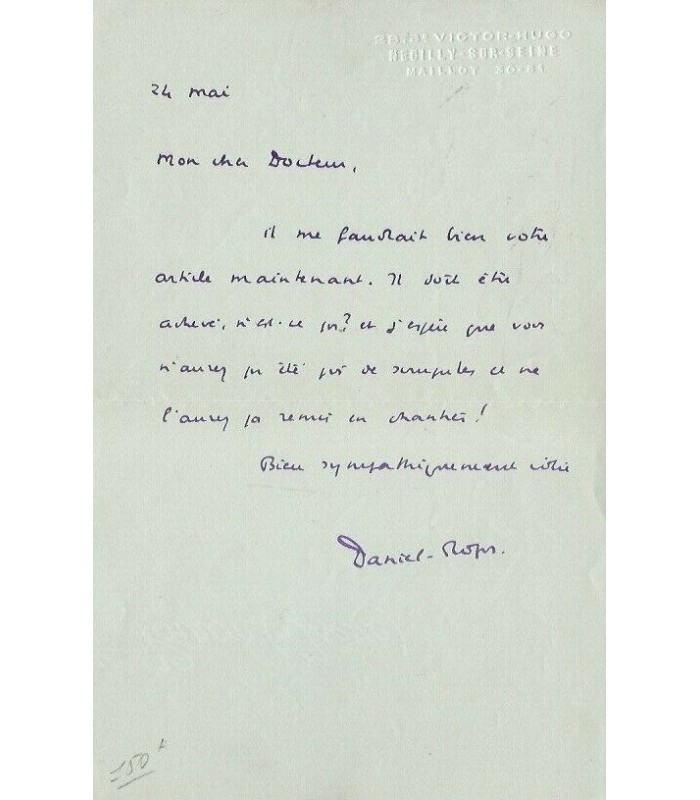 VICTOR-HUGO
NEUILLY-SUR-SEINE
MAILLOT 30-81
24 mai
Mon cher Docteur,
il me faudrait bien votre
article maintenant. Il doit être
achevé, n'est-ce pas? et j'espère que vous
n'aurez pas été pris de scrupules et ne
l'aurez pas remis en chantier!
Bien sympathiquement vôtre
Daniel-Rops.
150 F